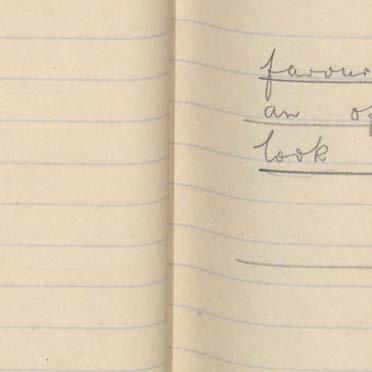 favour
an o
look